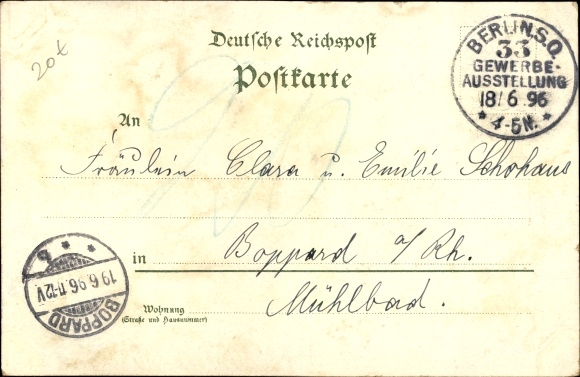 20x
Deutsche Reichspost
Postkarte
BERLIN.S.O.
33
GEWERBE-
AUSSTELLUNG
18/6 96
* 4-5N. *
An
Fräulein Clara u. Emilie Schohaus
in Boppard a/Rh.
Mühlbad.
Wohnung
(Straße und Hausnummer)
* * b
19.6.96.11-12V
BOPPARD